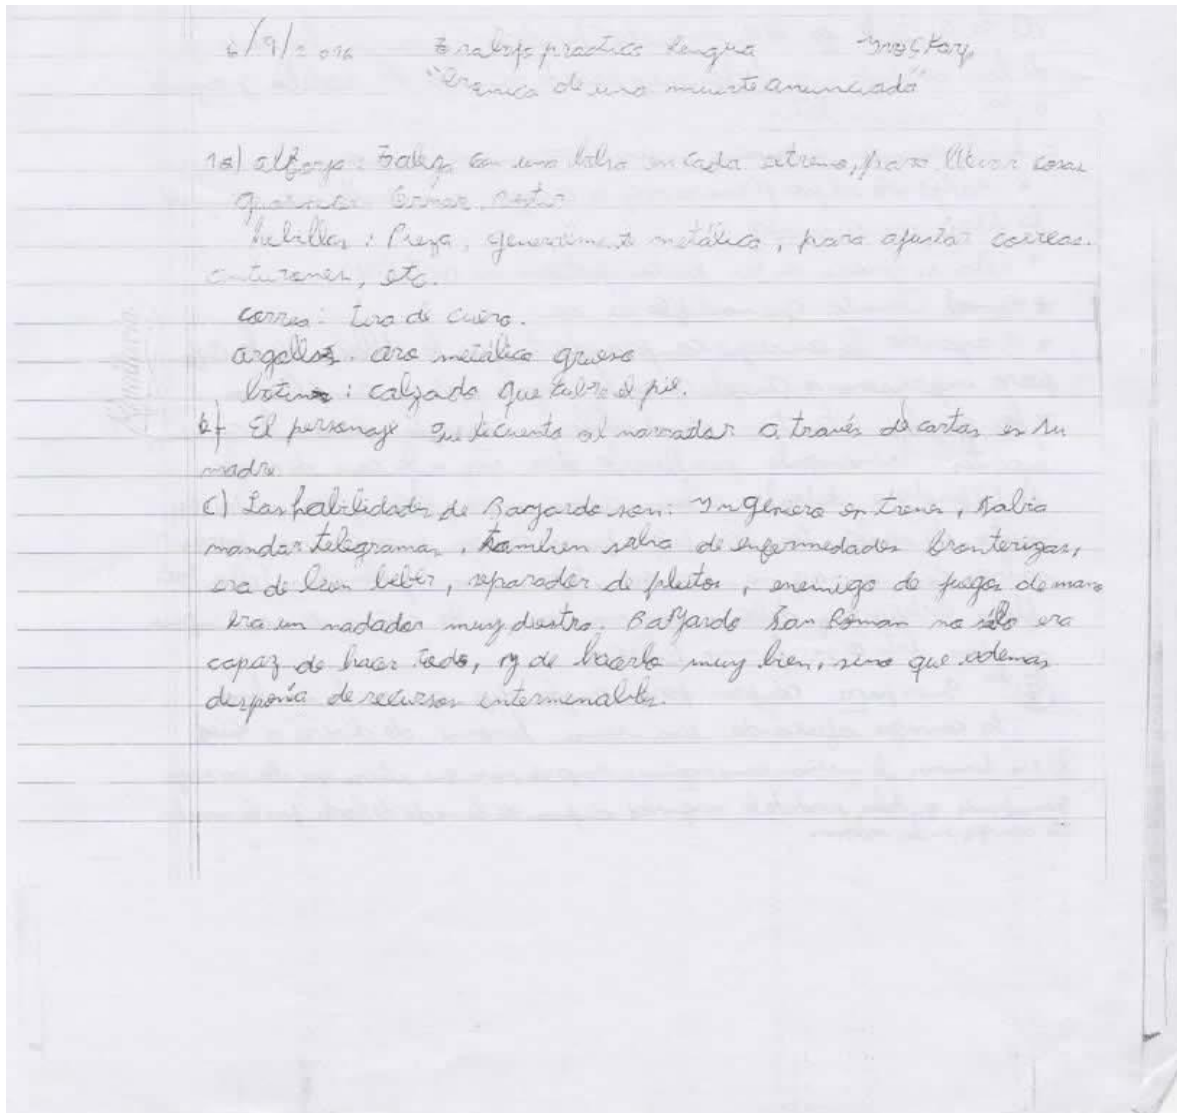 6/9/2016 Trabajo practico Lengua
"Cronica de una muerte anunciada"
1a) alforja: Tela con una bolsa en cada extremo, para llevar cosas
guarnecer: Cornar, vestir
hebillas: Pieza, generalmente metálica, para ajustar correas.
cinturones, etc.
correa: tira de cuero.
argollas. aro metálico grueso
botines: calzado que cubre el pie.
b) El personaje que le cuenta al narrador a través de cartas es su
madre
c) Las habilidades de Bayardo son: Ingeniero en trenes, Sabia
mandar telegramas, tambien sabia de enfermedades fronterizas,
era de buen beber, separador de pleitos, enemigo de juegos de mano
era un nadador muy diestro. Bayardo San Roman no sólo era
capaz de hacer todo, y de hacerlo muy bien, sino que ademas
desponía de recursos interminables.